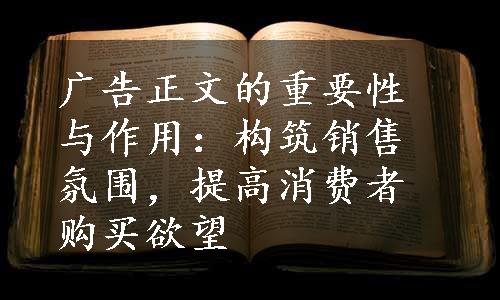 广告正文的重要性
与作用：构筑销售
氛围，提高消费者
购买欲望